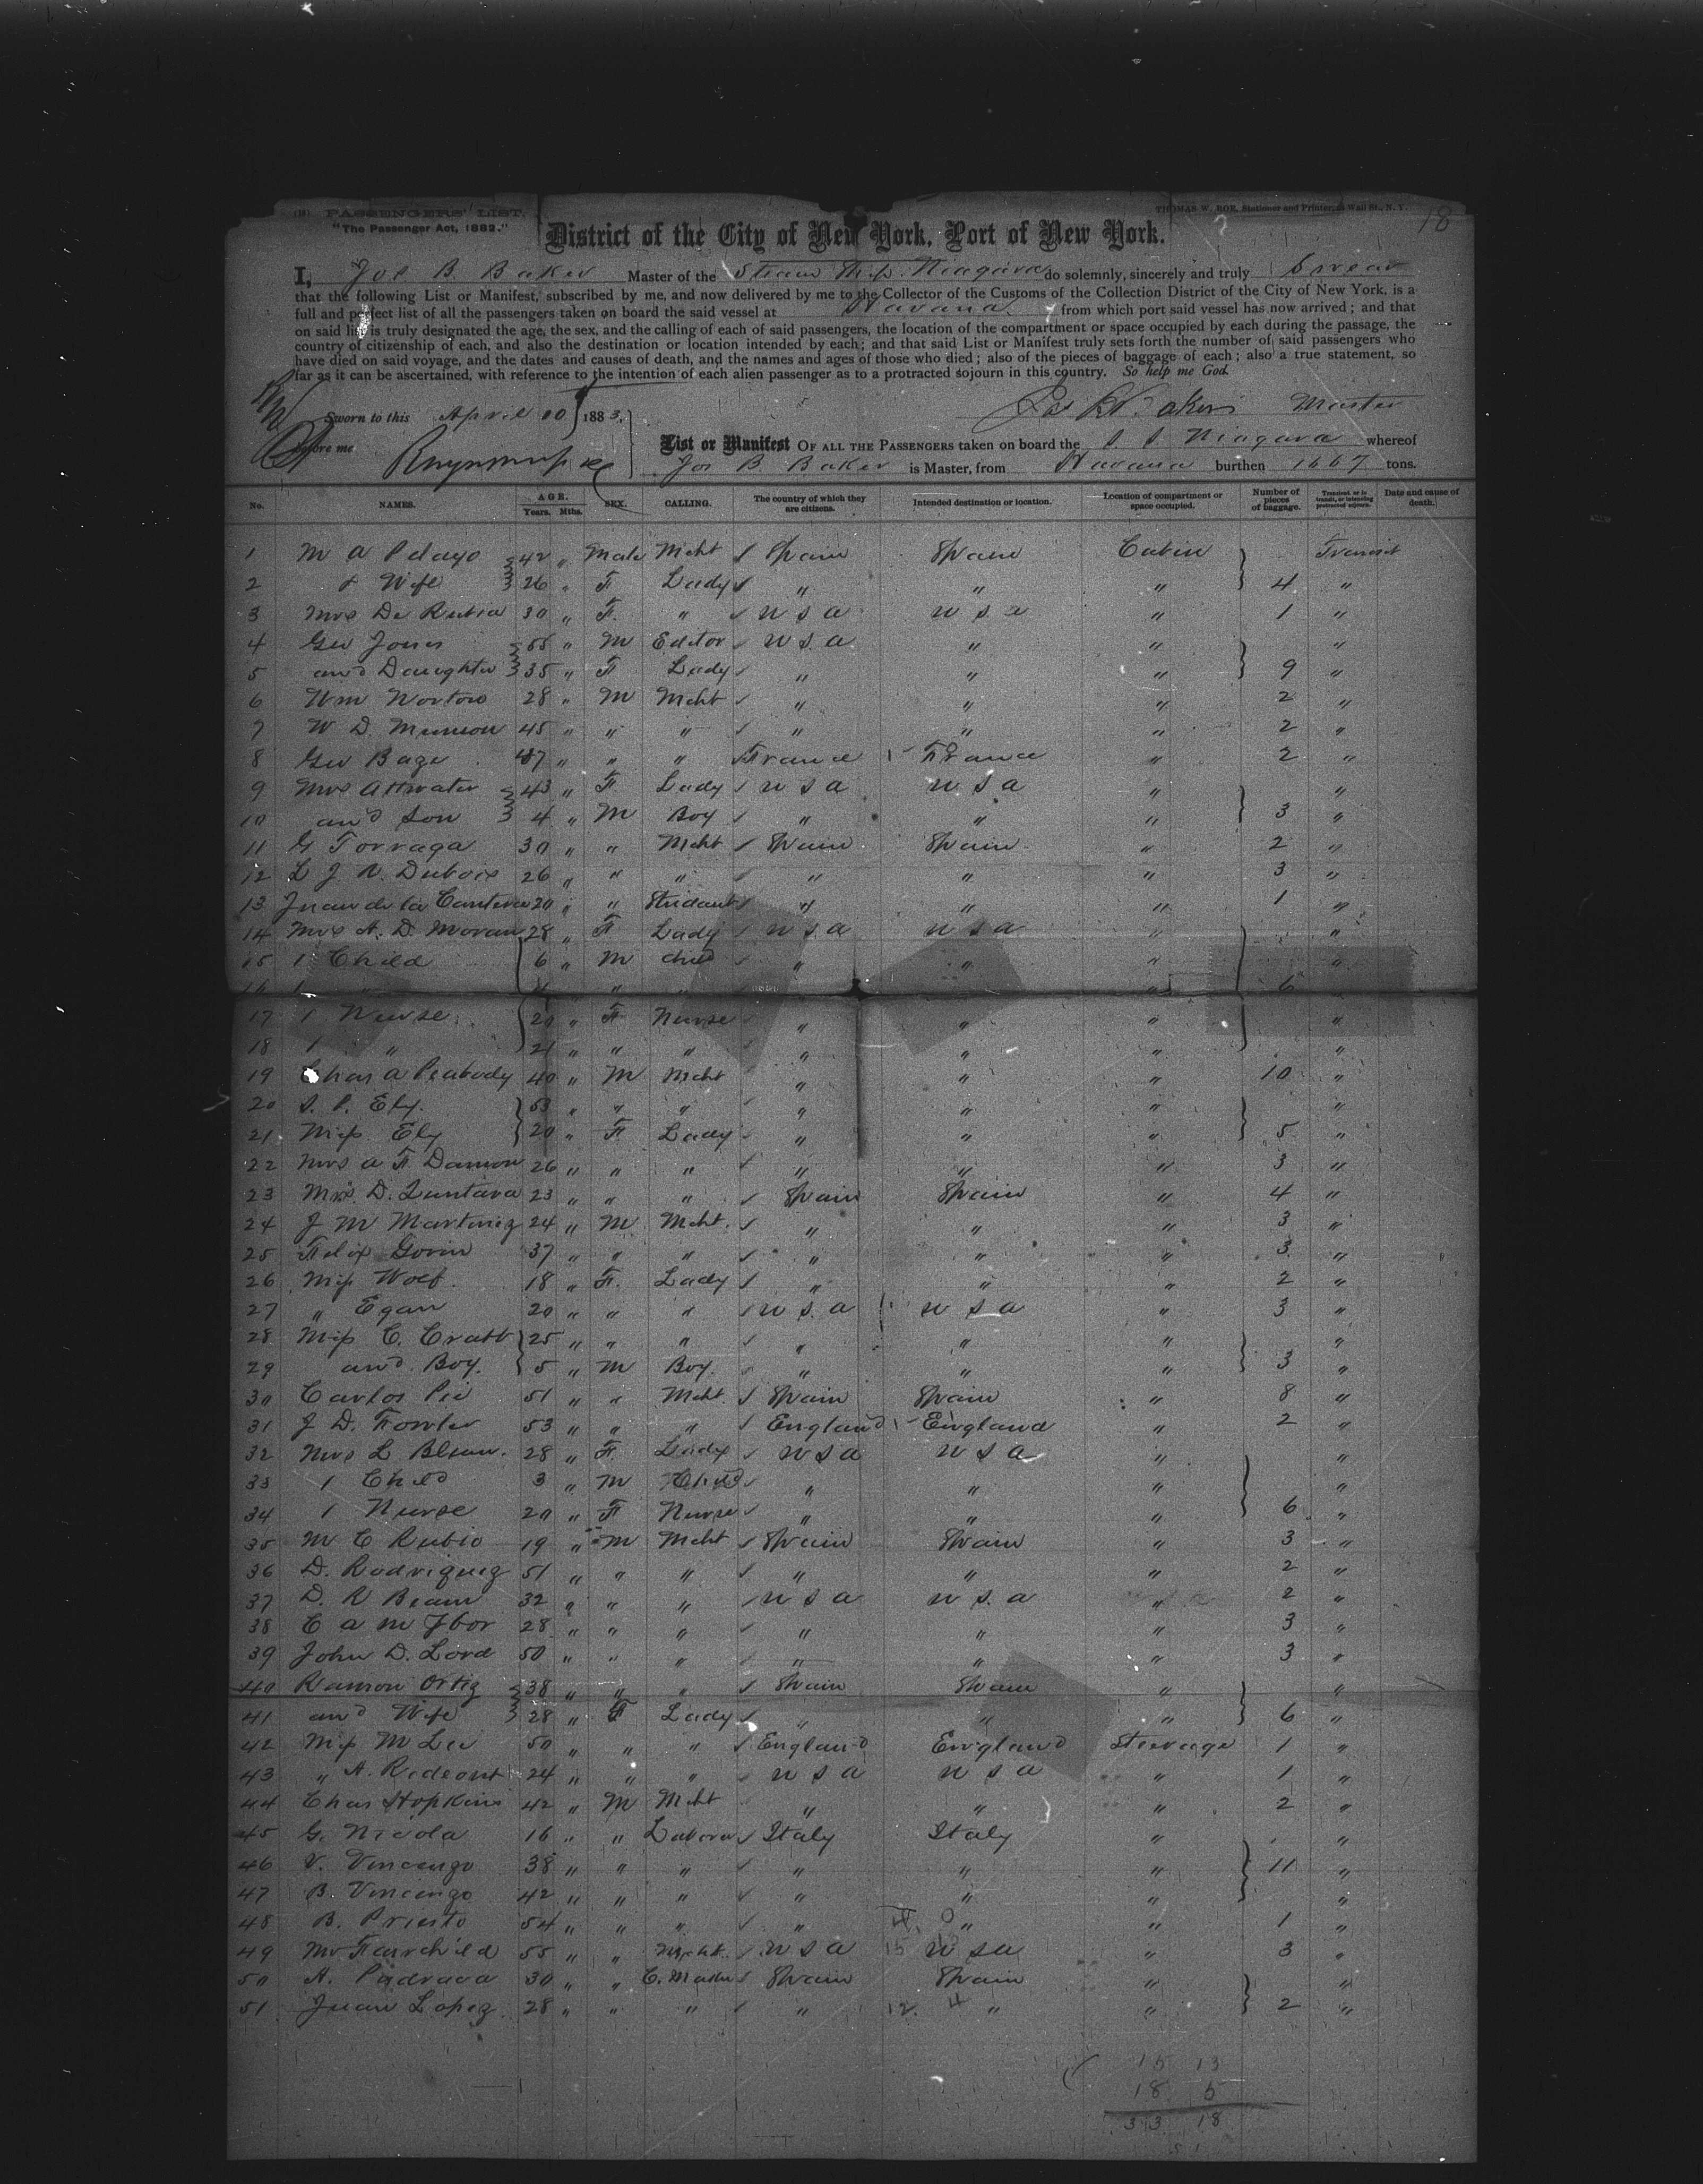 (18) PASSENGERS' LIST.
"The Passenger Act, 1882."
THOMAS W. ROE, Stationer and Printer, Wall St., N. Y.
18
District of the City of New York, Port of New York.
I, Jos B. Baker Master of the Steam Ship Niagara do solemnly, sincerely and truly swear
that the following List or Manifest, subscribed by me, and now delivered by me to the Collector of the Customs of the Collection District of the City of New York, is a
full and perfect list of all the passengers taken on board the said vessel at Havana from which port said vessel has now arrived; and that
on said list is truly designated the age, the sex, and the calling of each of said passengers, the location of the compartment or space occupied by each during the passage, the
country of citizenship of each, and also the destination or location intended by each; and that said List or Manifest truly sets forth the number of said passengers who
have died on said voyage, and the dates and causes of death, and the names and ages of those who died; also of the pieces of baggage of each; also a true statement, so
far as it can be ascertained, with reference to the intention of each alien passenger as to a protracted sojourn in this country. So help me God.
Jos B. Baker Master
Sworn to this April 10 1883.
before me
List or Manifest OF ALL THE PASSENGERS taken on board the S. S. Niagara whereof
Jos B Baker is Master, from Havana burthen 1667 tons.
No. NAMES. AGE. Years. Mths. SEX. CALLING. The country of which they are citizens. Intended destination or location. Location of compartment or space occupied. Number of pieces of baggage. Transient, or in transit, or intending protracted sojourn. Date and cause of death.
1 M A Pelayo 42 " Male Mcht Spain Spain Cabin Transit
2 & Wife 26 " F Lady " " " 4 "
3 Mrs De Rubia 30 " F. " U S A U S A " 1 "
4 Geo Jones 55 " M Editor U S A " " "
5 and Daughter 35 " F Lady " " " 9 "
6 Wm Norton 28 " M Mcht " " " 2 "
7 W D. Munson 45 " " " " " " 2 "
8 Geo Baze 47 " " " France France " 2 "
9 Mrs Attwater 43 " F. Lady U S A U S A " "
10 and Son 4 " M Boy " " " 3 "
11 G Torraga 30 " " Mcht Spain Spain " 2 "
12 L J V. Dubois 26 " " " " " " 3 "
13 Juan de la Cantera 20 " " Student " " " 1 "
14 Mrs A. D. Moran 28 " F Lady U S A U S A " "
15 1 Child 6 " M Child " " " "
16 1 " " " 6
17 1 Nurse 20 " F Nurse " " " "
18 1 " 21 " " " " " " "
19 Chas A Peabody 40 " M Mcht " " " 10 "
20 S. P. Ely. 53 " " " " " " "
21 Miss Ely 20 " F Lady " " " 5 "
22 Mrs A F Damon 26 " " " " " " 3 "
23 D. Quntava 23 " " " Spain Spain " 4 "
24 J M Martinez 24 " M Mcht. " " " 3 "
25 Felix Govin 37 " " " " " " 3 "
26 Miss Wolf. 18 " F. Lady " " " 2 "
27 " Egan 20 " " " U S. A U S A " 3 "
28 Miss C. Cratt 25 " " " " " " "
29 and Boy. 5 " M Boy. " " " 3 "
30 Carlos Pie 51 " " Mcht. Spain Spain " 8 "
31 J D. Fowler 53 " " " England England " 2 "
32 Mrs L Blum. 28 " F. Lady U S A U S A " "
33 1 Child 3 " M Child " " " "
34 1 Nurse 20 " F Nurse " " " 6 "
35 M C Rubio 19 " M Mcht Spain Spain " 3 "
36 D. Rodriguez 51 " " " " " " 2 "
37 D. R Beam 32 " " " U S A U S. A " 2 "
38 C A M Ybor 28 " " " " " " 3 "
39 John D. Lord 50 " " " " " " 3 "
40 Ramon Ortiz 38 " " " Spain Spain " "
41 and Wife 28 " F Lady " " " 6 "
42 Miss M Lee 50 " " " England England Steerage 1 "
43 " A. Rideout 24 " " " U S A U S A " 1 "
44 Chas Hopkins 42 " M Mcht " " " 2 "
45 G. Nicola 16 " " Laborer Italy Italy " "
46 V. Vincenzo 38 " " " " " " 11 "
47 B. Vincenzo 42 " " " " " " "
48 B. Priesto 54 " " " " " " 1 "
49 Mr Fairchild 55 " " Mcht. U S A U S A " 3 "
50 A. Padrava 30 " " C. Maker Spain Spain " "
51 Juan Lopez 28 " " " " 12. 4 " " 2 "
15 13
18 5
33 18
51